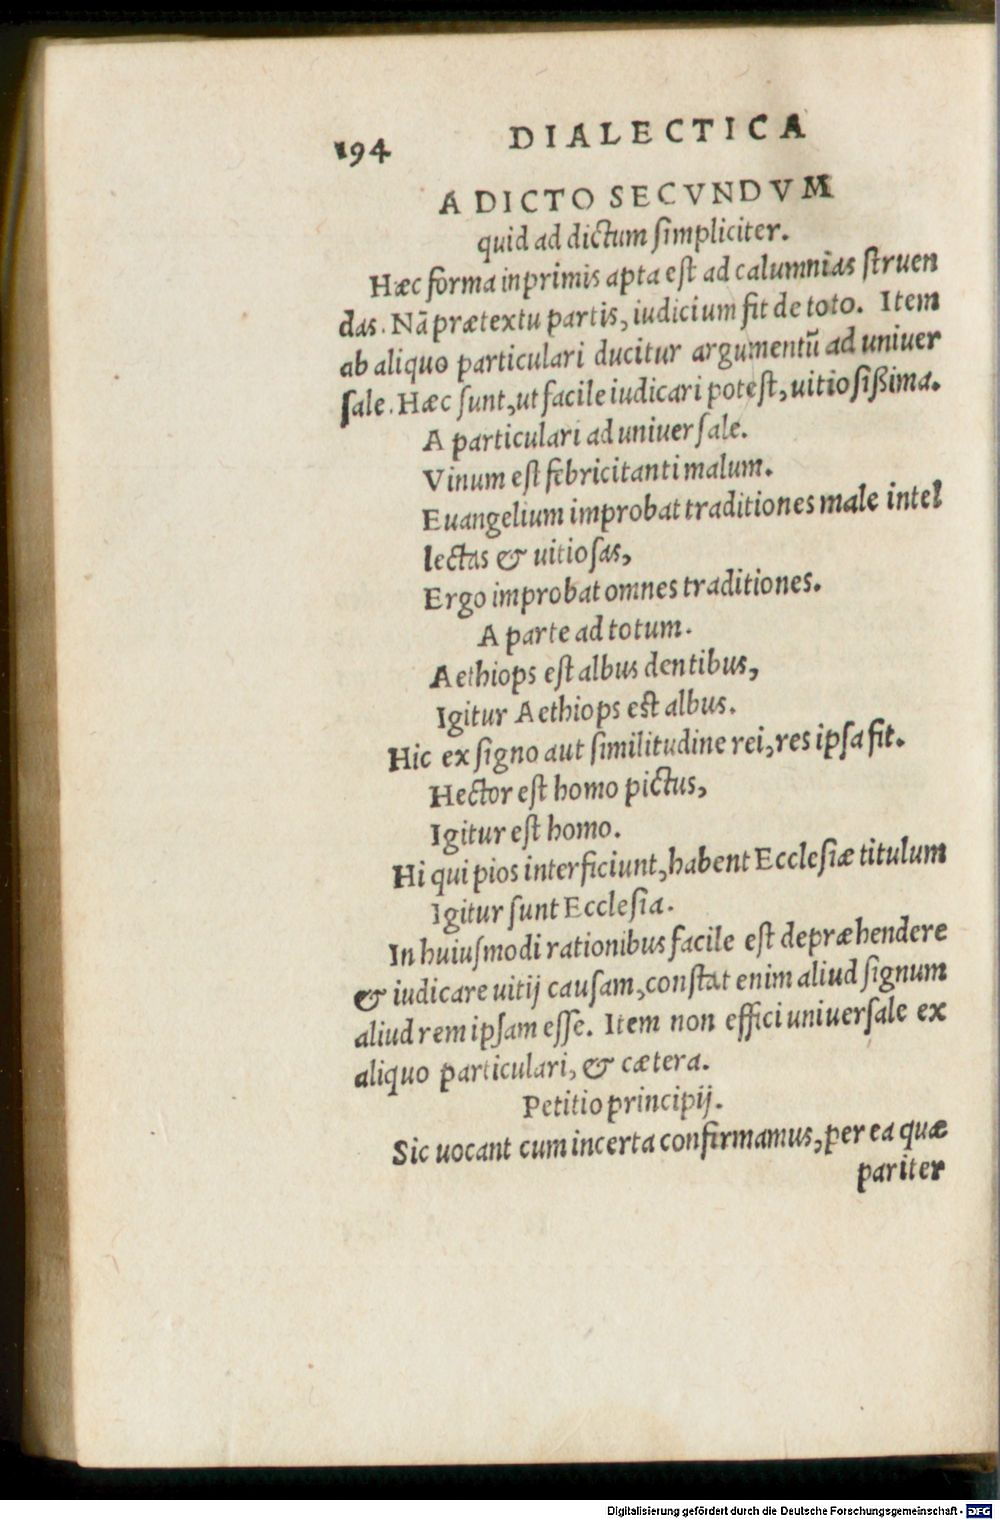 194 DIALECTICA
A DICTO SECVNDVM
quid ad dictum ſimpliciter.
Hæc forma inprimis apta eſt ad calumnias ſtruen
das. Nã prætextu partis, iudicium fit de toto. Item
ab aliquo particulari ducitur argumentũ ad uniuer
ſale. Hæc ſunt, ut facile iudicari poteſt, uitioſißima.
A particulari ad uniuerſale.
Vinum eſt febricitanti malum.
Euangelium improbat traditiones male intel
lectas & uitioſas,
Ergo improbat omnes traditiones.
A parte ad totum.
Aethiops eſt albus dentibus,
Igitur Aethiops eſt albus.
Hic ex ſigno aut ſimilitudine rei, res ipſa fit.
Hector eſt homo pictus,
Igitur eſt homo.
Hi qui pios interficiunt, habent Eccleſiæ titulum
Igitur ſunt Eccleſia.
In huiuſmodi rationibus facile eſt depræhendere
& iudicare uitij cauſam, conſtat enim aliud ſignum
aliud rem ipſam eſſe. Item non effici uniuerſale ex
aliquo particulari, & cætera.
Petitio principij.
Sic uocant cum incerta confirmamus, per ea quæ
pariter
Digitalisierung gefördert durch die Deutsche Forschungsgemeinschaft - DFG